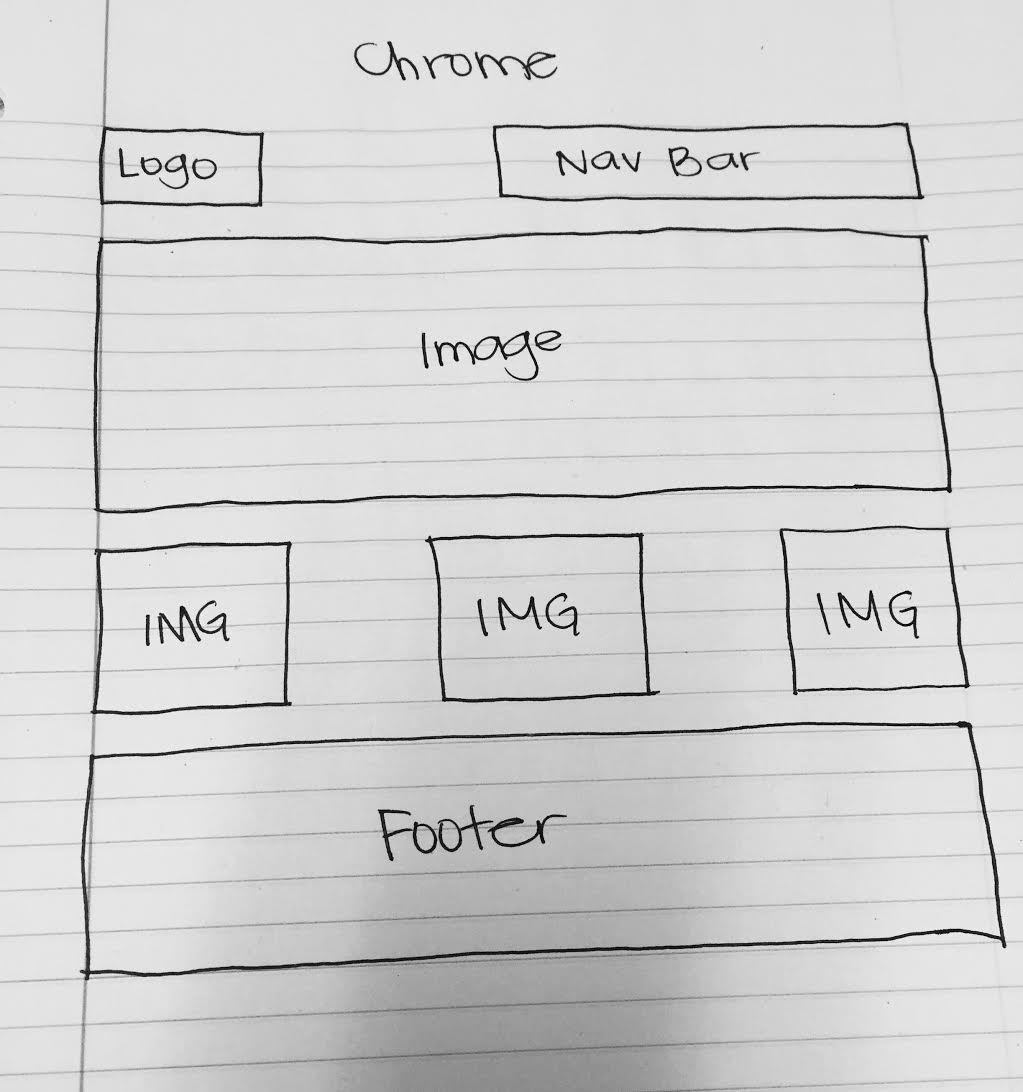 Chrome
Logo
Nav Bar
Image
IMG
IMG
IMG
Footer